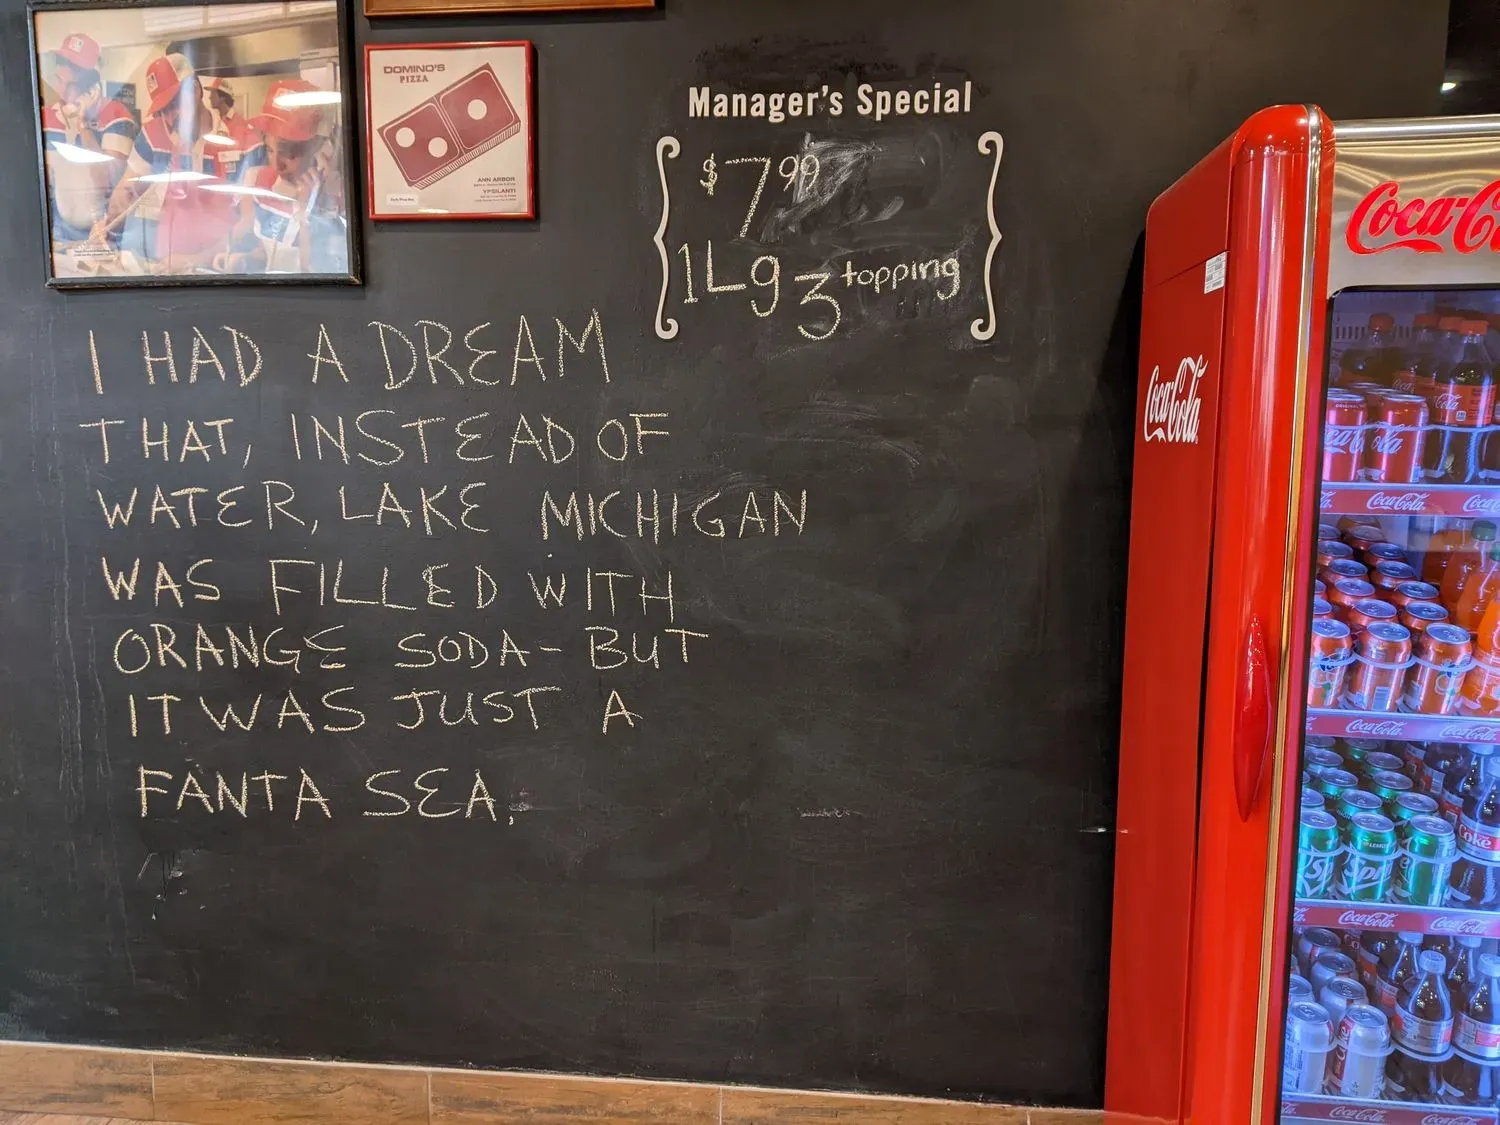 DOMINO'S
PIZZA
ANN ARBOR
YPSILANTI
Manager's Special
$7.99
1 Lg 3 topping
I HAD A DREAM
THAT, INSTEAD OF
WATER, LAKE MICHIGAN
WAS FILLED WITH
ORANGE SODA - BUT
IT WAS JUST A
FANTA SEA.
Coca-Cola
Coca-Cola
Coca-Cola
Coca-Cola
Coca-Cola
Coca-Cola
Coca-Cola
Coke
Coca-Cola
Coca-Cola